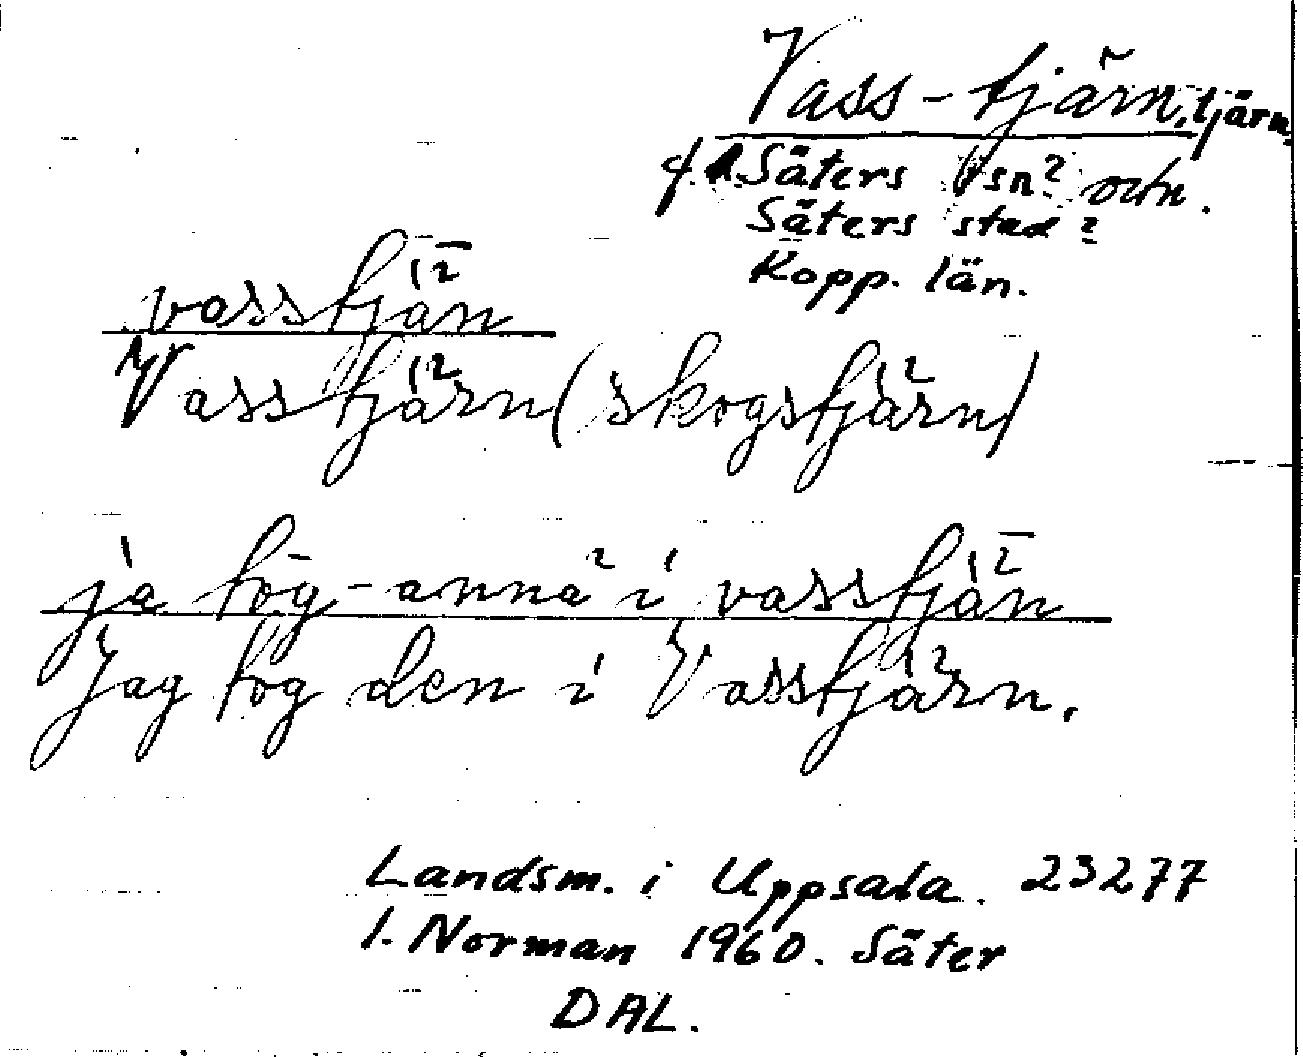 Vass-tjärn, tjärn.
Säters sn? och
Säters stad?
Kopp. län.
vasstjän
Vasstjärn (skogstjärn)
ja tōg-annä i vasstjän
Jag tog den i Vasstjärn.
Landsm. i Uppsala. 23277
I. Norman 1960. Säter
DAL.